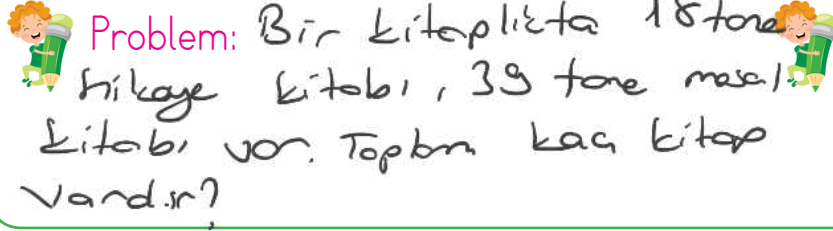 Problem: Bir kitaplıkta 18 tane
hikaye kitabı, 39 tane masal
kitabı var. Toplam kaç kitap
vardır?